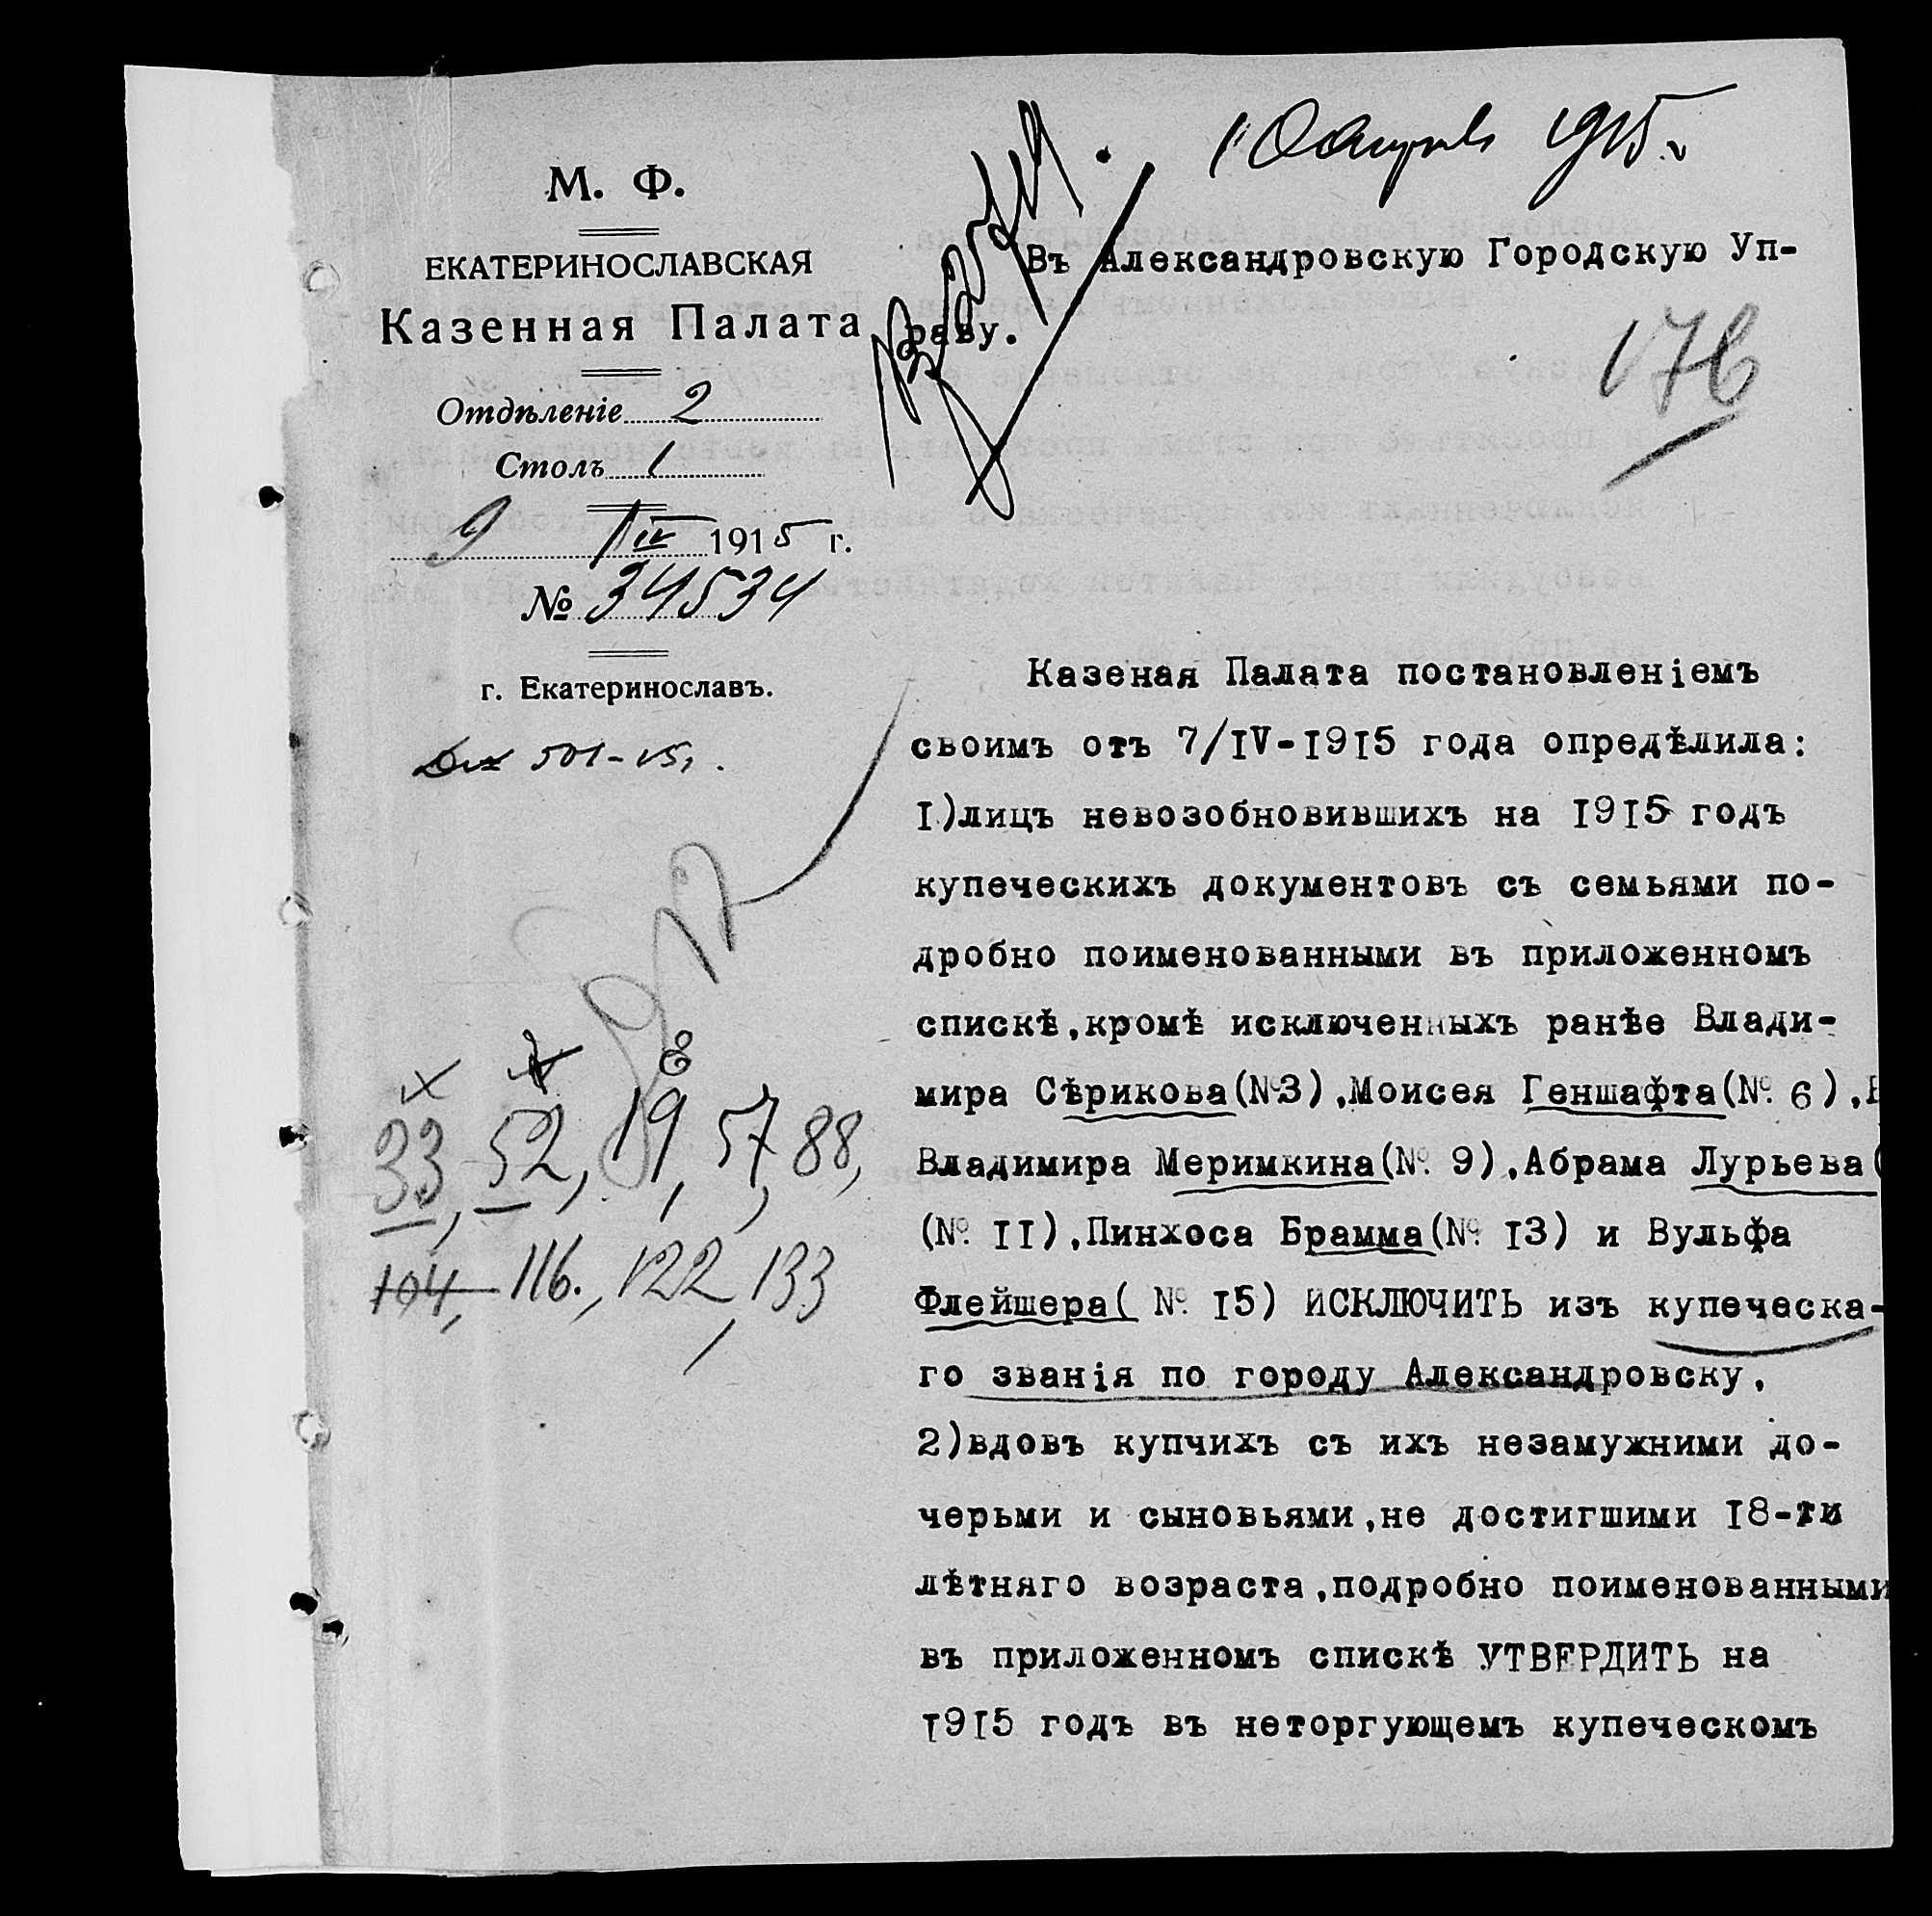 10 Апрѣля 1915 г.
М. Ф.
ЕКАТЕРИНОСЛАВСКАЯ
Казенная Палата
Отдѣленіе 2
Столъ 1
9 / IV 1915 г.
№ 34534
г. Екатеринославъ.
501-15
Въ Александровскую Городскую Уп-
раву.
176
Казеная Палата постановленіемъ
своимъ отъ 7/IV-1915 года опредѣлила:
1)лицъ невозобновившихъ на 1915 годъ
купеческихъ документовъ съ семьями по-
дробно поименованными въ приложенномъ
спискѣ,кромѣ исключенныхъ ранѣе Влади-
мира Сѣрикова(№3),Моисея Геншафта(№ 6),
Владимира Меримкина(№ 9),Абрама Лурьева(
(№ 11),Пинхоса Брамма(№ 13) и Вульфа
Флейшера( № 15) ИСКЛЮЧИТЬ изъ купеческа-
го званія по городу Александровску,
2)вдовъ купчихъ съ ихъ незамужними до-
черьми и сыновьями,не достигшими 18-ти
лѣтняго возраста,подробно поименованными
въ приложенномъ спискѣ УТВЕРДИТЬ на
1915 годъ въ неторгующемъ купеческомъ
33, 52, 19, 57, 88,
104, 116., 122, 133